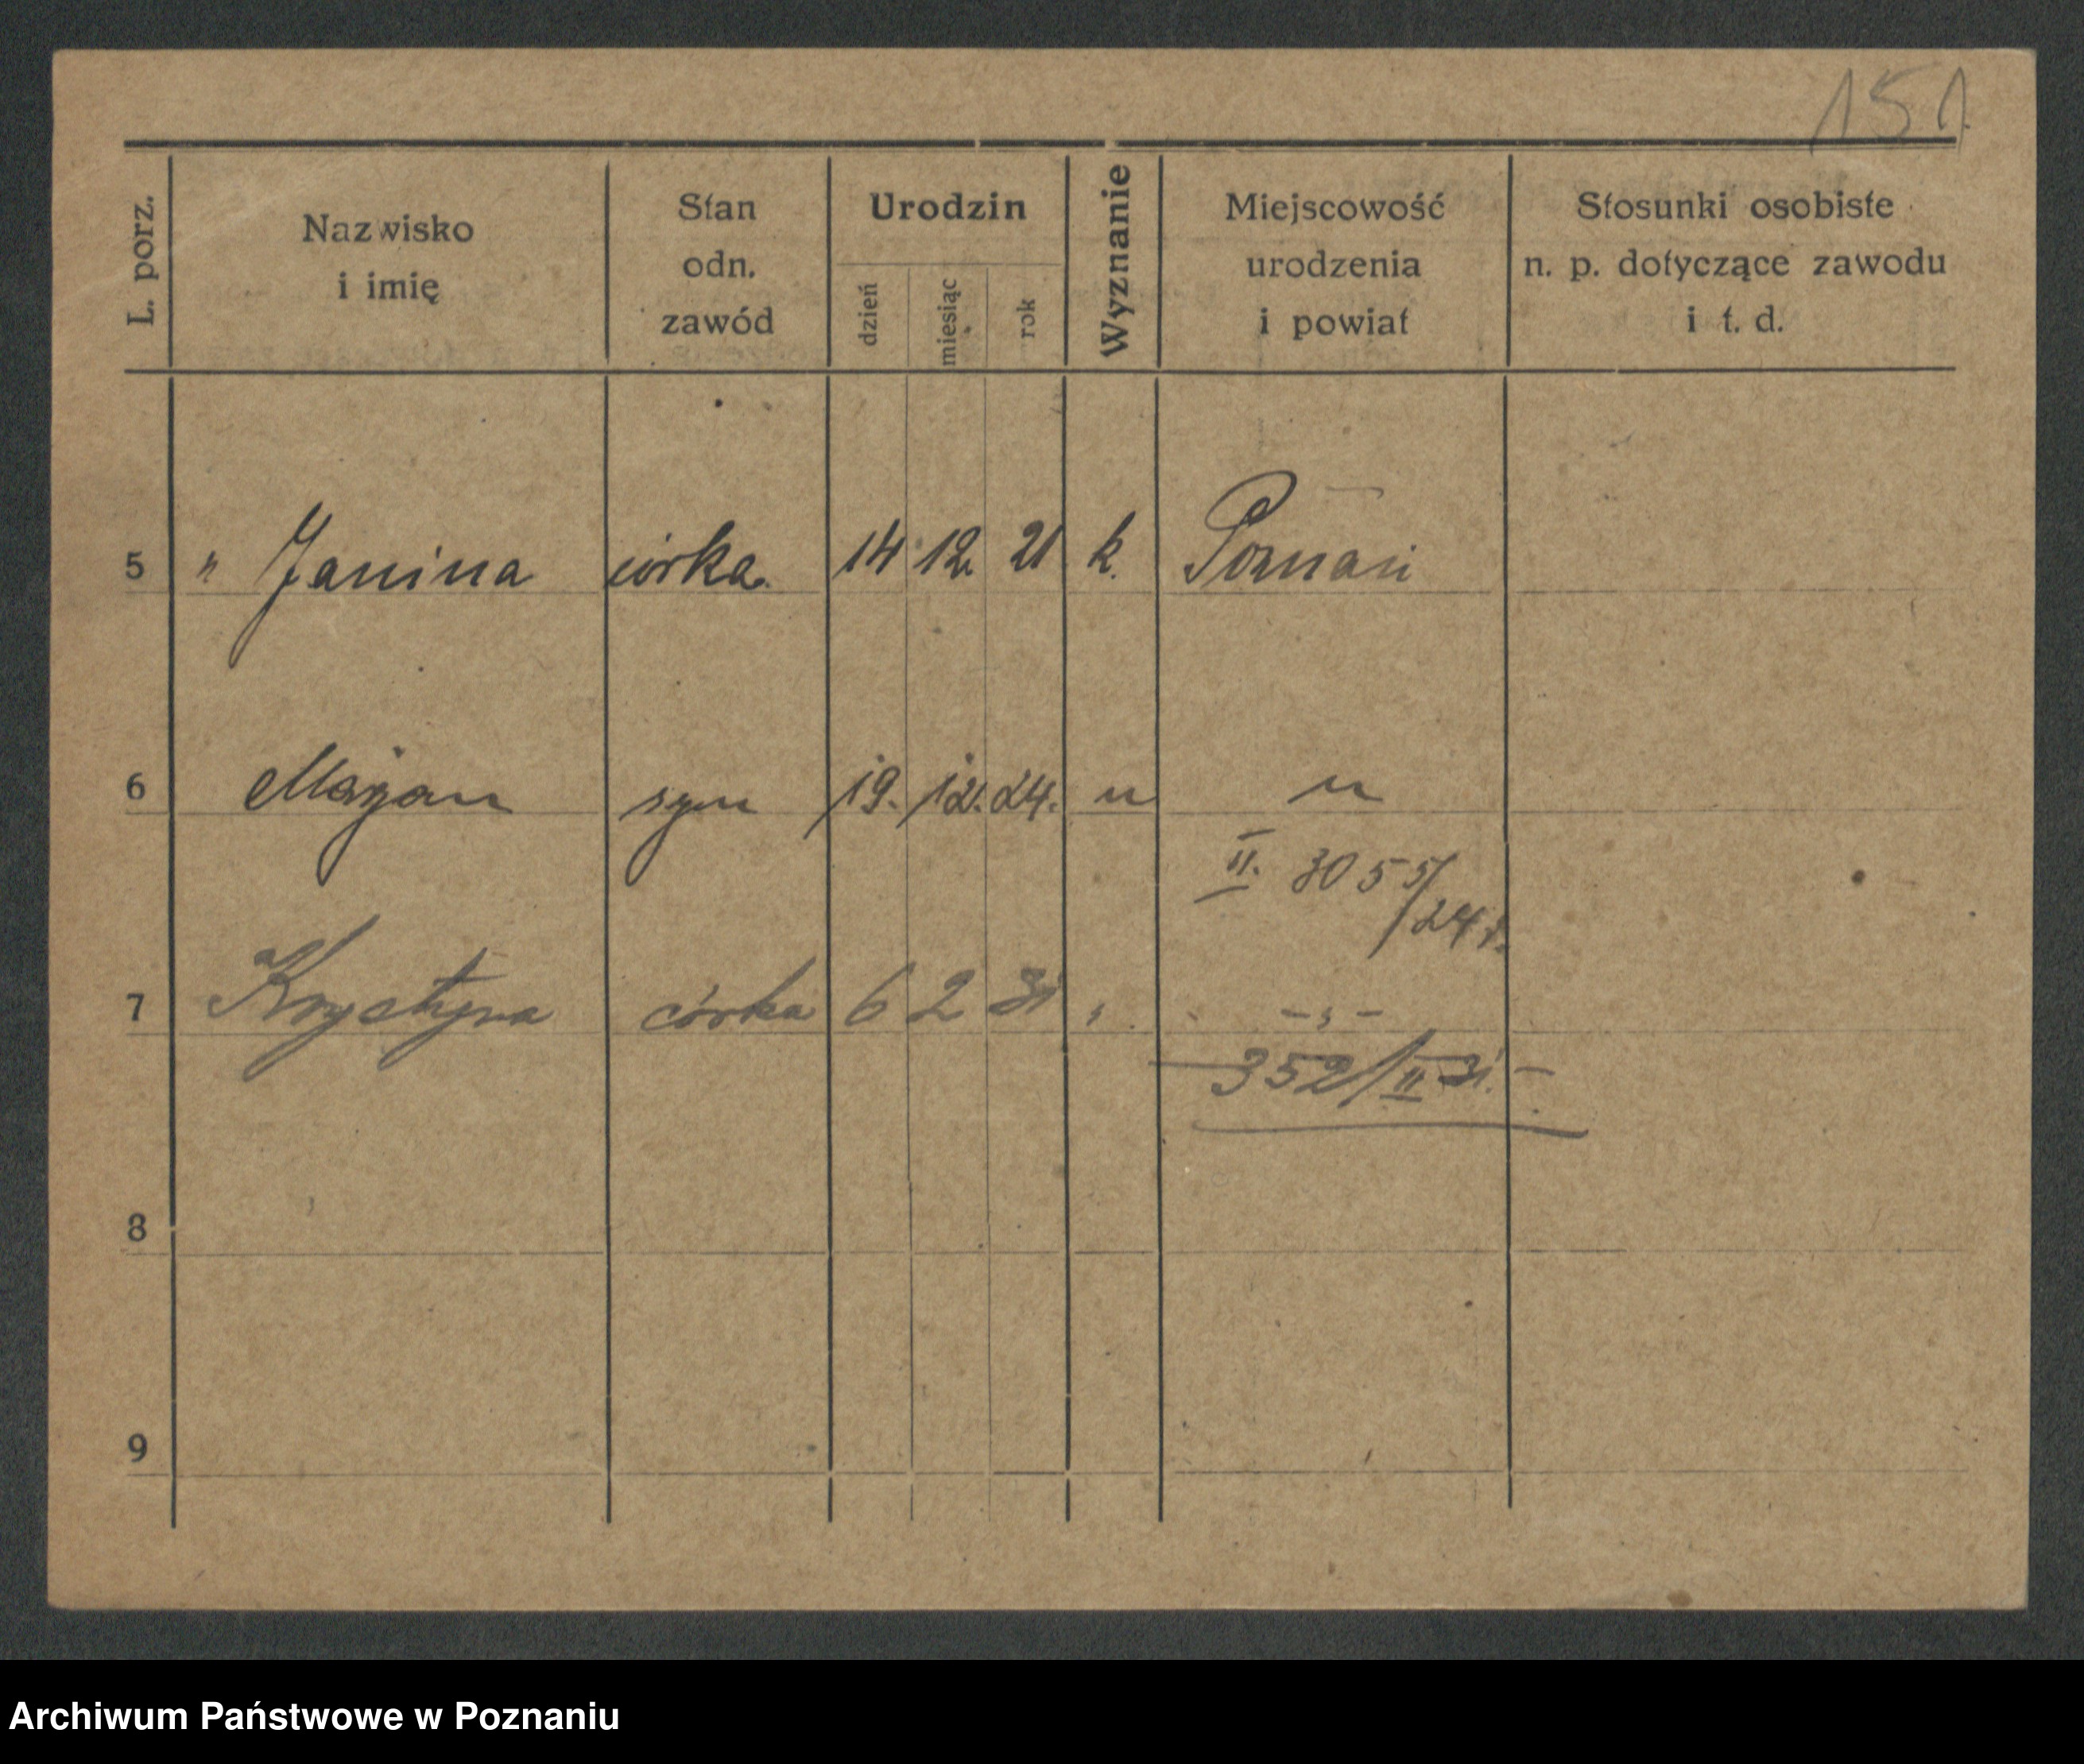 151
L. porz.
Nazwisko
i imię
Stan
odn.
zawód
Urodzin
dzień
miesiąc
rok
Wyznanie
Miejscowość
urodzenia
i powiat
Stosunki osobiste
n. p. dotyczące zawodu
i t. d.
5 " Janina córka. 14 12. 21 k. Poznań
6 Marjan syn 19. 12. 24. " "
II. 3055/24 r.
7 Krystyna córka 6 2 31 " - " -
- 352/II 31. -
8
9
Archiwum Państwowe w Poznaniu